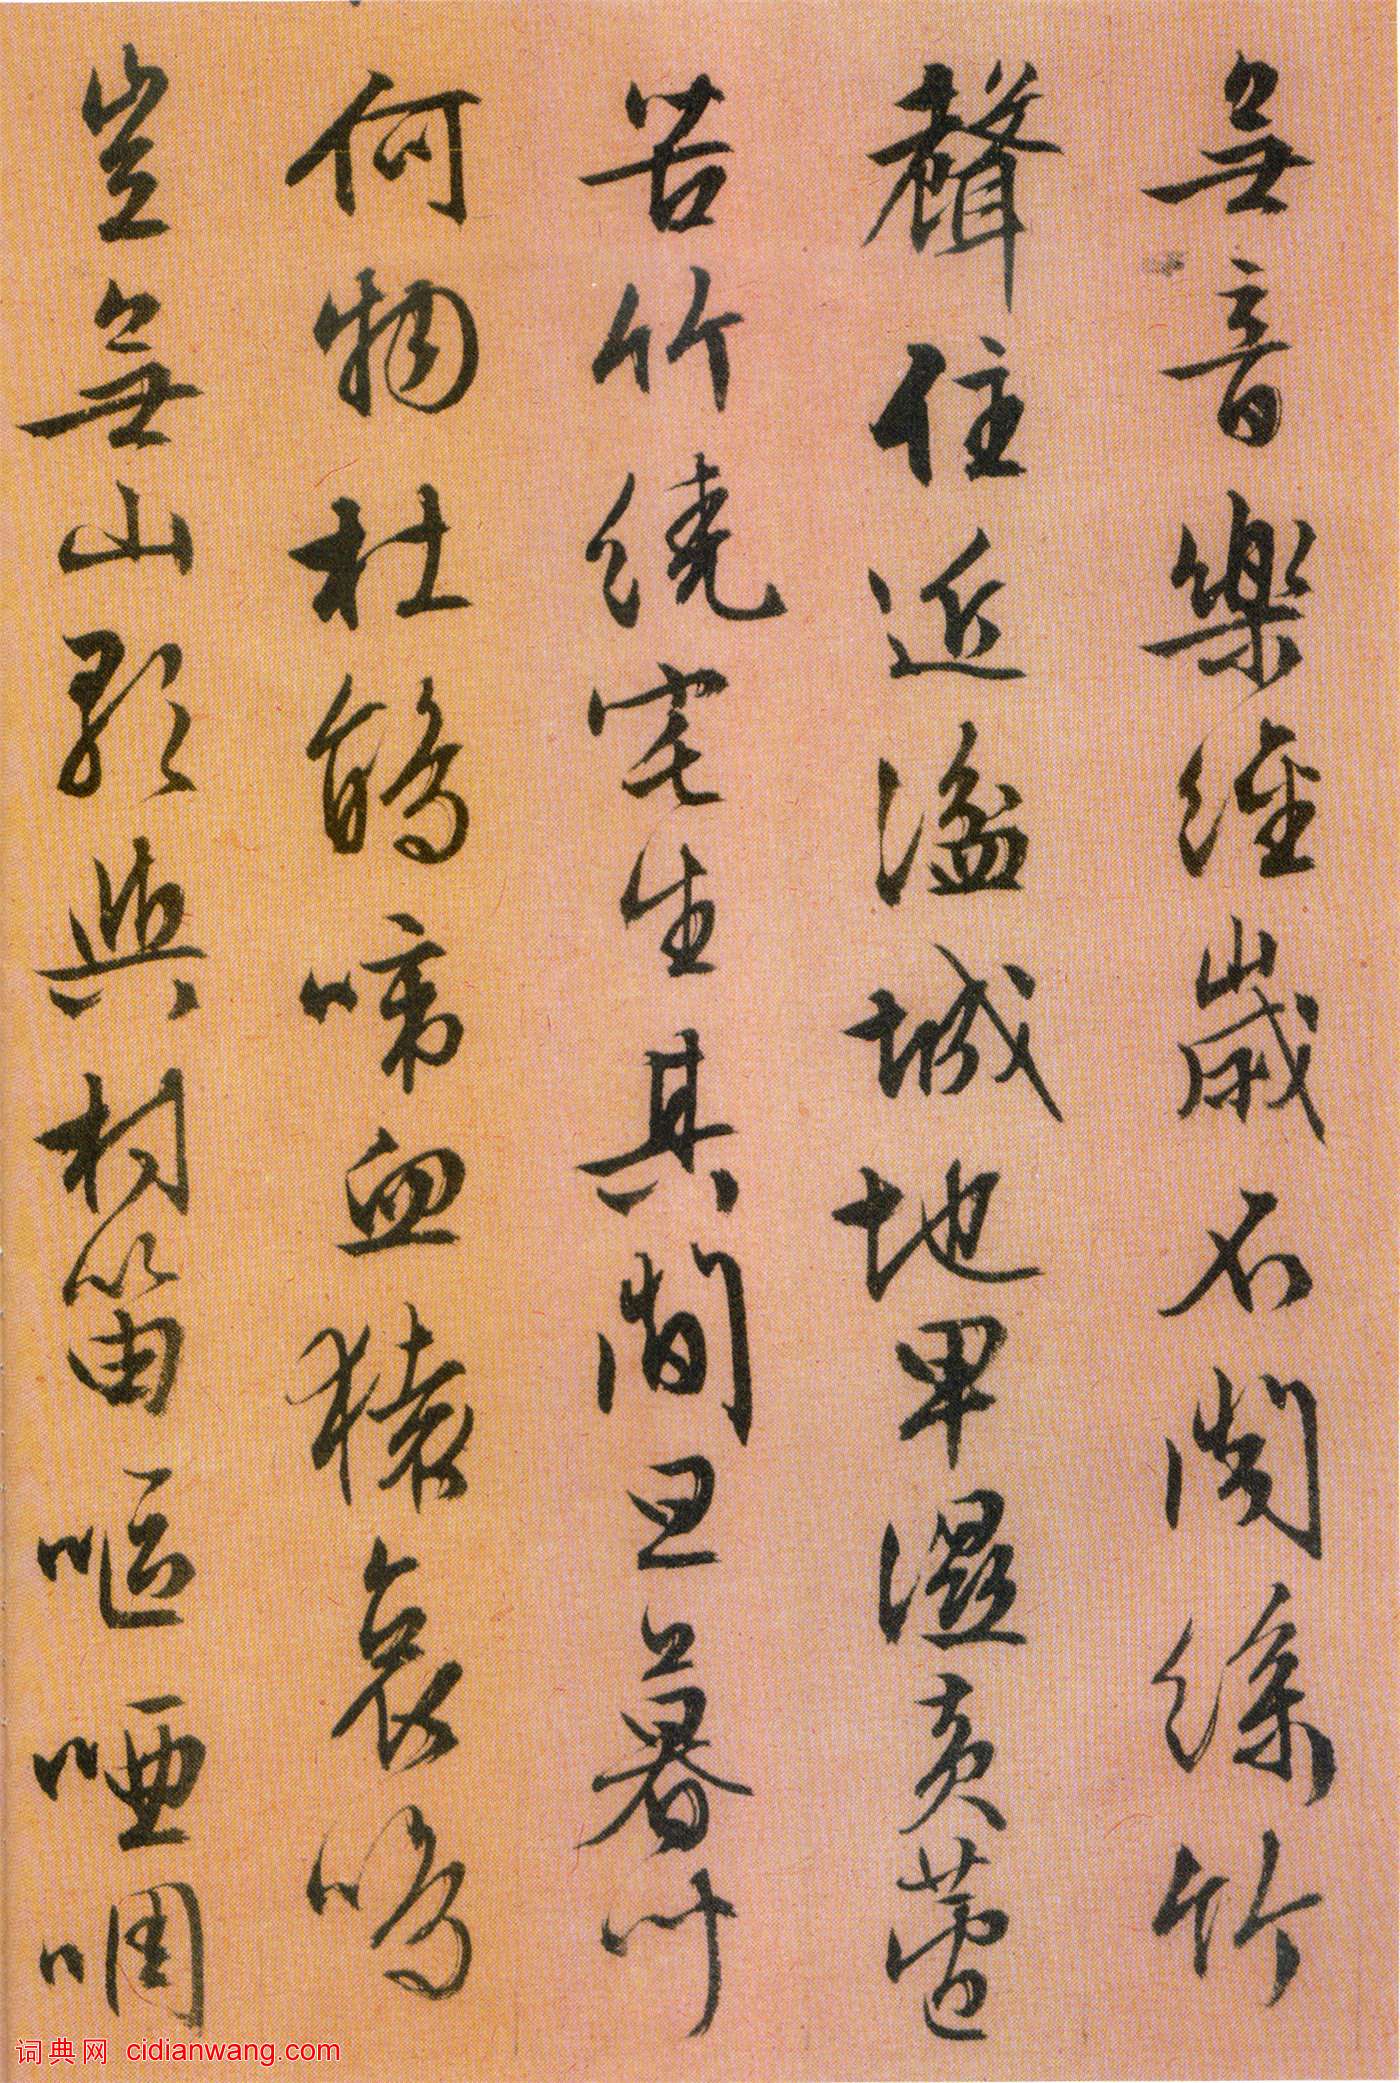 無音樂經歲不聞絲竹
聲住近湓城地卑濕黄蘆
苦竹繞宅生其間旦暮聞
何物杜鵑啼血猿哀鳴
豈無山歌與村笛嘔啞啁
词典网 cidianwang.com